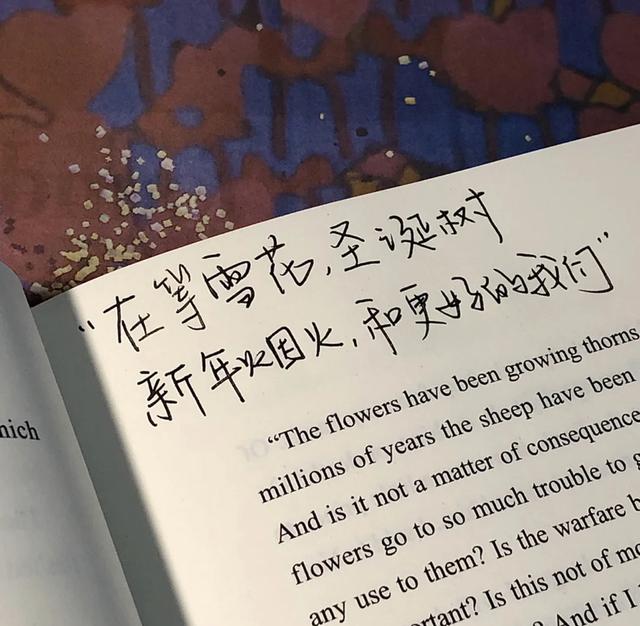 “在等雪花，圣诞树
新年烟火，和更好的我们”
nich
“The flowers have been growing thorns
millions of years the sheep have been
And is it not a matter of consequence
flowers go to so much trouble to g
any use to them? Is the warfare b
rtant? Is this not of mo
? And if I